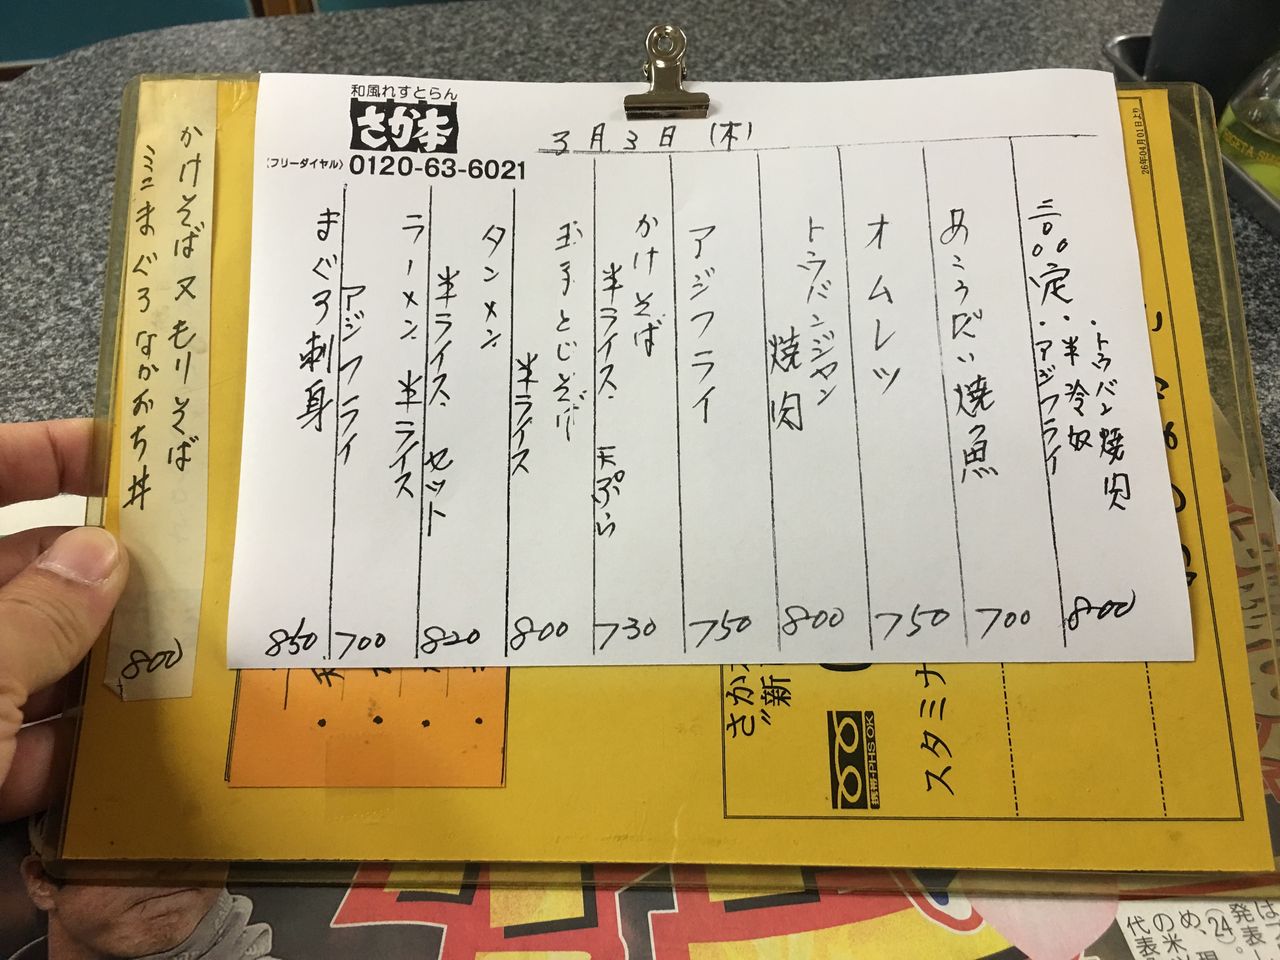 和風れすとらん
さか本
(フリーダイヤル) 0120-63-6021
3月3日 (木)
・トウバン焼肉
・半冷奴
・アジフライ
定
800
焼魚
700
オムレツ
750
トウバンジャン
焼肉
800
アジフライ
750
かけそば
半ライス・天ぷら
730
玉子とじそば
半ライス
800
タンメン
半ライス・セット
820
ラーメン 半ライス
アジフライ
700
まぐろ刺身
850
かけそば又もりそば
ミニまぐろなかおち丼
800
26年04月01日より
さか
新
スタミナ
携帯・PHS OK
発表
24
代表
の米
め、